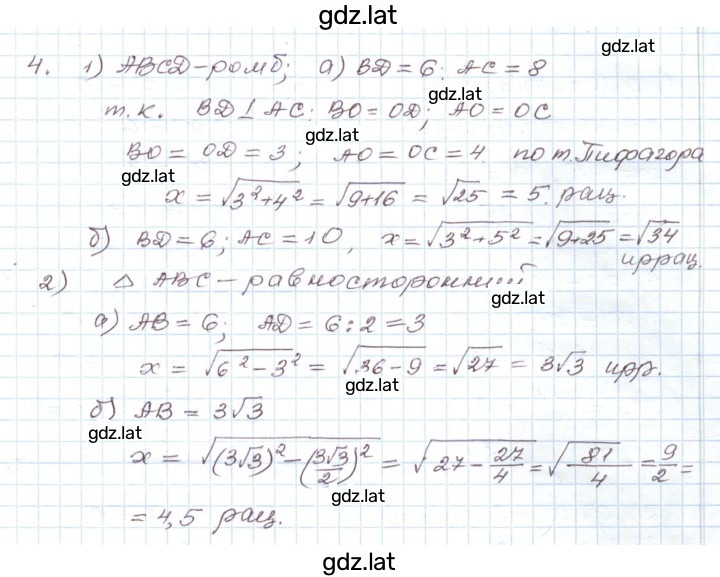 gdz.lat
gdz.lat
4. 1) ABCD-ромб; а) BD = 6; AC = 8
gdz.lat
т.к. BD ⊥ AC; BO = OD; AO = OC
gdz.lat
BO = OD = 3; AO = OC = 4 по т. Пифагора
gdz.lat
x = √(3²+4²) = √(9+16) = √25 = 5. рац.
б) BD = 6; AC = 10, x = √(3²+5²) = √(9+25) = √34
иррац.
2) △ ABC – равносторонний
gdz.lat
а) AB = 6; AD = 6:2 = 3
x = √(6²-3²) = √(36-9) = √27 = 3√3 ирр.
gdz.lat
б) AB = 3√3
gdz.lat
x = √((3√3)²-(3√3/2)²) = √(27-27/4) = √(81/4) = 9/2 =
gdz.lat
= 4,5 рац.
gdz.lat